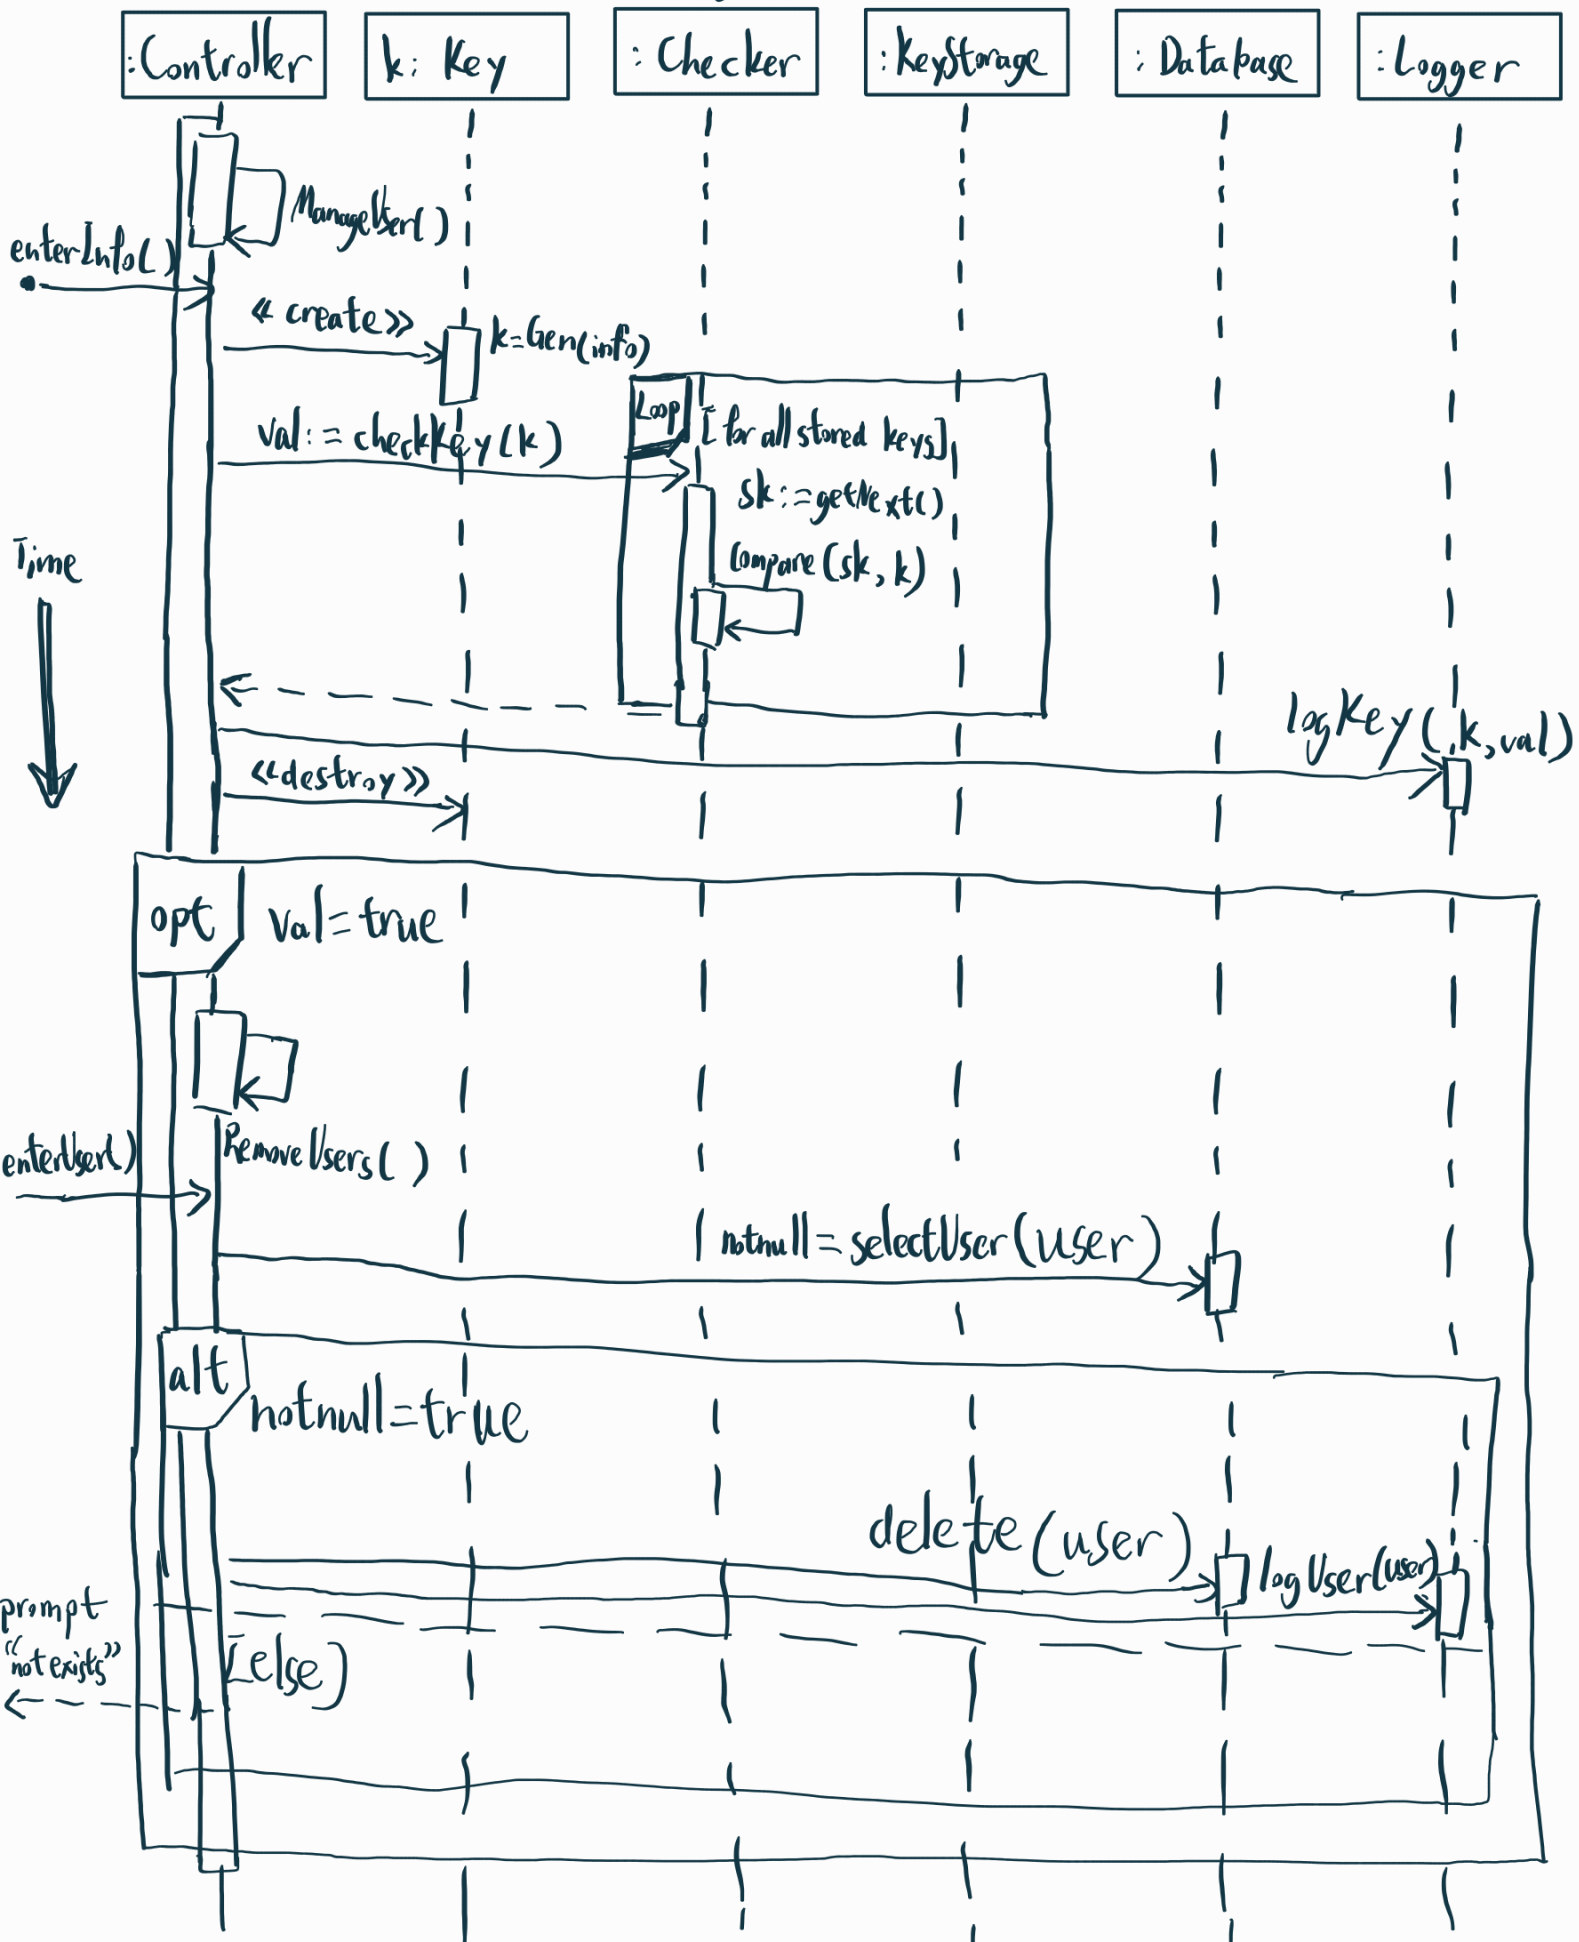 :Controller
k: Key
:Checker
:KeyStorage
:Database
:Logger
ManageUser()
enterInfo()
«create»
k=Gen(info)
Loop
[for all stored keys]
val:=checkKey(k)
sk:=getNext()
Time
Compare(sk, k)
logKey(k,val)
«destroy»
opt
val=true
enterUser()
RemoveUsers()
notnull=selectUser(user)
alt
notnull=true
delete(user)
logUser(user)
prompt
"not exists"
[else]